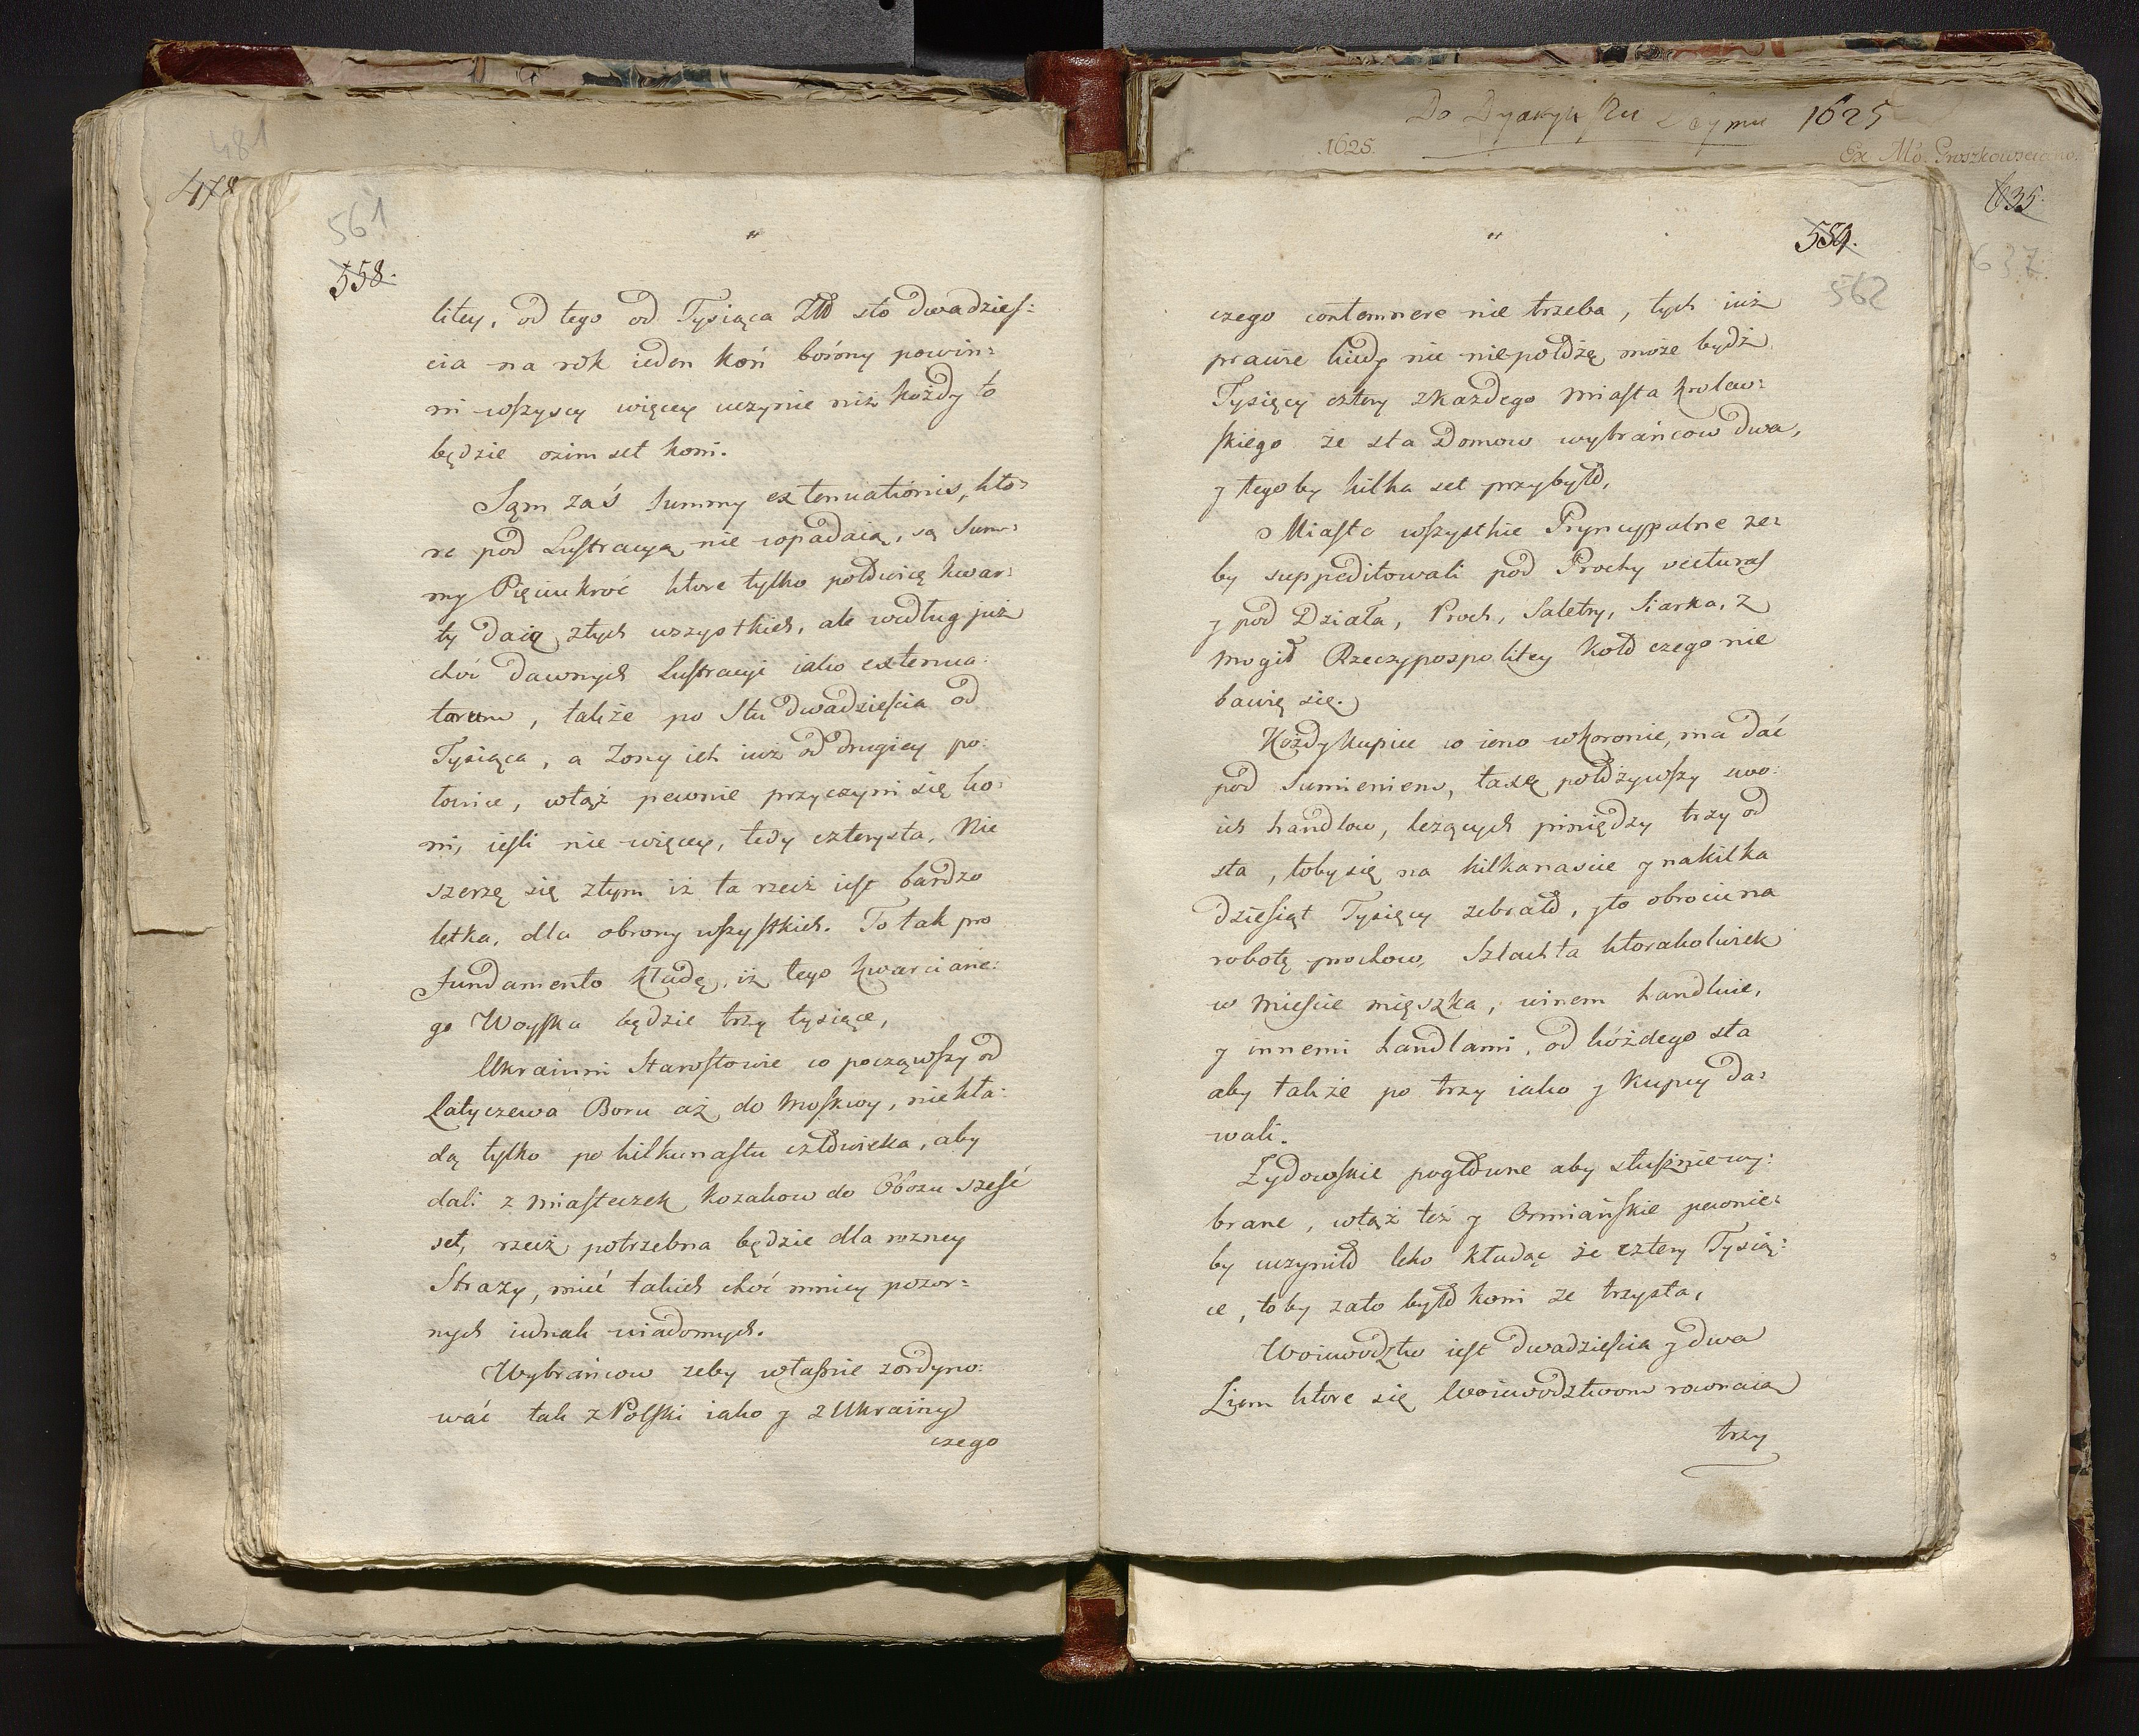 481
478
561
558.
"
litey, od tego od Tysiąca Złł sto dwadzieś:
cia na rok ieden koń boiony powin:
ni wszyscy więcey uczynie niż kożdy to
będzie osim set koni.
Sąm zaś Summy extenuationis, kto:
re pod Lustracyą nie wpadaią, są Sum:
my Pięciukroć ktore tylko połowicę kwar:
ty daią ztych wszystkich, ale według już
choć dawnych Lustracyi iako extenua:
tarum, także po Stu dwadzieścia od
Tysiąca, a Zony ich iuż od drugiey po:
łowice, wtąż pewnie przyczyni się ko:
ni, ieśli nie więcey, tedy czterysta. Nie
szerzę się ztym iż ta rzecz iest bardzo
letka, dla obrony wszystkich. To tak pro
fundamento kładę, iż tego kwarciane:
go Woyska będzie trzy tysiące,
Ukrainni Starostowie co począwszy od
Latyczewa Boru aż do Moskwy, niekła:
dą tylko po kilkunastu człowieka, aby
dali z miasteczek kozakow do Obozu sześć
set, rzecz potrzebna będzie dla rozney
Strazy, mieć takich choć mniey pozor:
nych iednak wiadomych.
Wybrańcow zeby własnie zordyno:
wać tak z Polski iako y z Ukrainy
czego
Do Dyaryuszu Seymu 1625
1625.
Ex Mo. Proszkowsciano.
635.
637.
"
559.
562
czego contemnere nie trzeba, tych iuż
prawie kiedy nic niepołożą może bydź
Tysięcy cztery zkażdego miasta krolew:
skiego ze sta Domow wybrańcow dwa,
y tegoby kilka set przybyło,
Miasta wszystkie Pryncypalne że:
by suppeditowali pod Prochy vecturas
y pod Działa, Proch, Saletry, Siarka, z
mogił Rzeczypospolitey koło czego nie
bawię się.
Kożdy kupiec co ieno wkoronie, ma dać
pod Sumieniem, taxę położywszy swo:
ich handlow, leżących pieniędzy trzy od
sta, toby się na kilkanaście y nakilka
dziesiąt Tysięcy zebrało, y to obrocić na
robotę prochow, Szlachta ktorakolwiek
w mieście mięszka, winem handluie,
y innemi handlami, od kóżdego sta
aby także po trzy iako y kupcy da:
wali.
Żydowskie pogłowne aby słusznie wy:
brane, wtąż też y Ormiańskie pewnie:
by uczyniło leko kładąc że cztery Tysią:
ce, to by zato było koni ze trzysta,
Woiewodztw iest dwadzieścia y dwa
Ziem ktore się Woiewodztwom rownaią
trzy